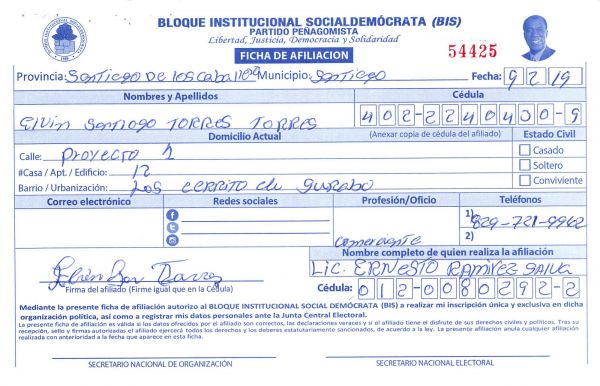 BLOQUE INSTITUCIONAL SOCIALDEMÓCRATA (BIS)
PARTIDO PEÑAGOMISTA
Libertad, Justicia, Democracia y Solidaridad
FICHA DE AFILIACION
54425
Provincia: Santiago De los Caballero Municipio: Santiago Fecha: 9 2 19
Nombres y Apellidos Cédula
Elvin Santiago TORRES TORRES 402-2240430-9
Domicilio Actual (Anexar copia de cédula del afiliado) Estado Civil
Calle: Proyecto 1 Casado
#Casa / Apt. / Edificio: 12 Soltero
Barrio / Urbanización: Los cerrito de gurabo Conviviente
Correo electrónico Redes sociales Profesión/Oficio Teléfonos
1) 829-721-9962
comerciante 2)
Nombre completo de quien realiza la afiliación
Lic. ERNESTO RAMIREZ
Firma del afiliado (Firme igual que en la Cédula) Cédula: 012-0080292-2
Mediante la presente ficha de afiliación autorizo al BLOQUE INSTITUCIONAL SOCIAL DEMÓCRATA (BIS) a realizar mi inscripción única y exclusiva en dicha
organización política, así como a registrar mis datos personales ante la Junta Central Electoral.
La presente ficha de afiliación es válida si los datos ofrecidos por el afiliado son correctos, las declaraciones veraces y si el afiliado tiene el disfrute de sus derechos civiles y políticos. Tras su
recepción, sello y firmas autorizadas el afiliado ejercerá todos los derechos y los deberes estatutariamente sancionados, de acuerdo a la ley. La presente afiliación anula cualquier afiliación
realizada con anterioridad a la fecha que aparece en esta ficha.
SECRETARIO NACIONAL DE ORGANIZACIÓN SECRETARIO NACIONAL ELECTORAL